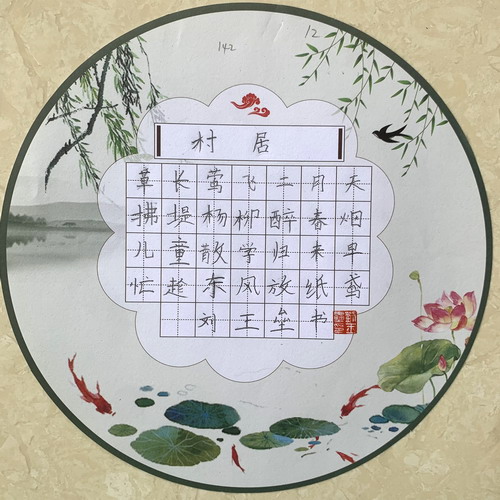 142
12
村居
草长莺飞二月天
拂堤杨柳醉春烟
儿童散学归来早
忙趁东风放纸鸢
刘王垒书